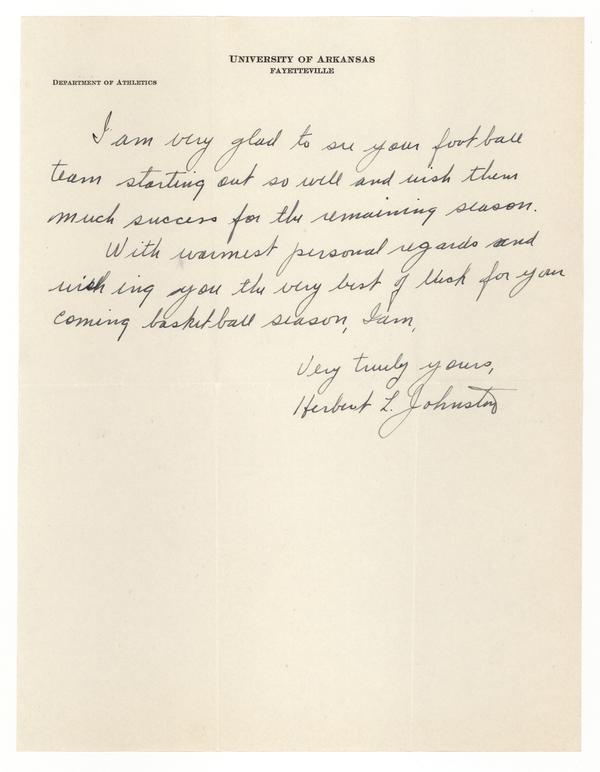 UNIVERSITY OF ARKANSAS
FAYETTEVILLE
DEPARTMENT OF ATHLETICS
I am very glad to see your foot ball
team starting out so well and wish them
much success for the remaining season.
With warmest personal regards and
wishing you the very best of luck for your
coming basket-ball season, I am,
Very truly yours,
Herbert L. Johnston